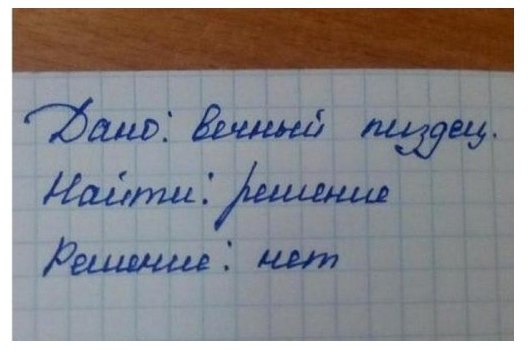 Дано: вечный пиздец.
Найти: решение
Решение: нет